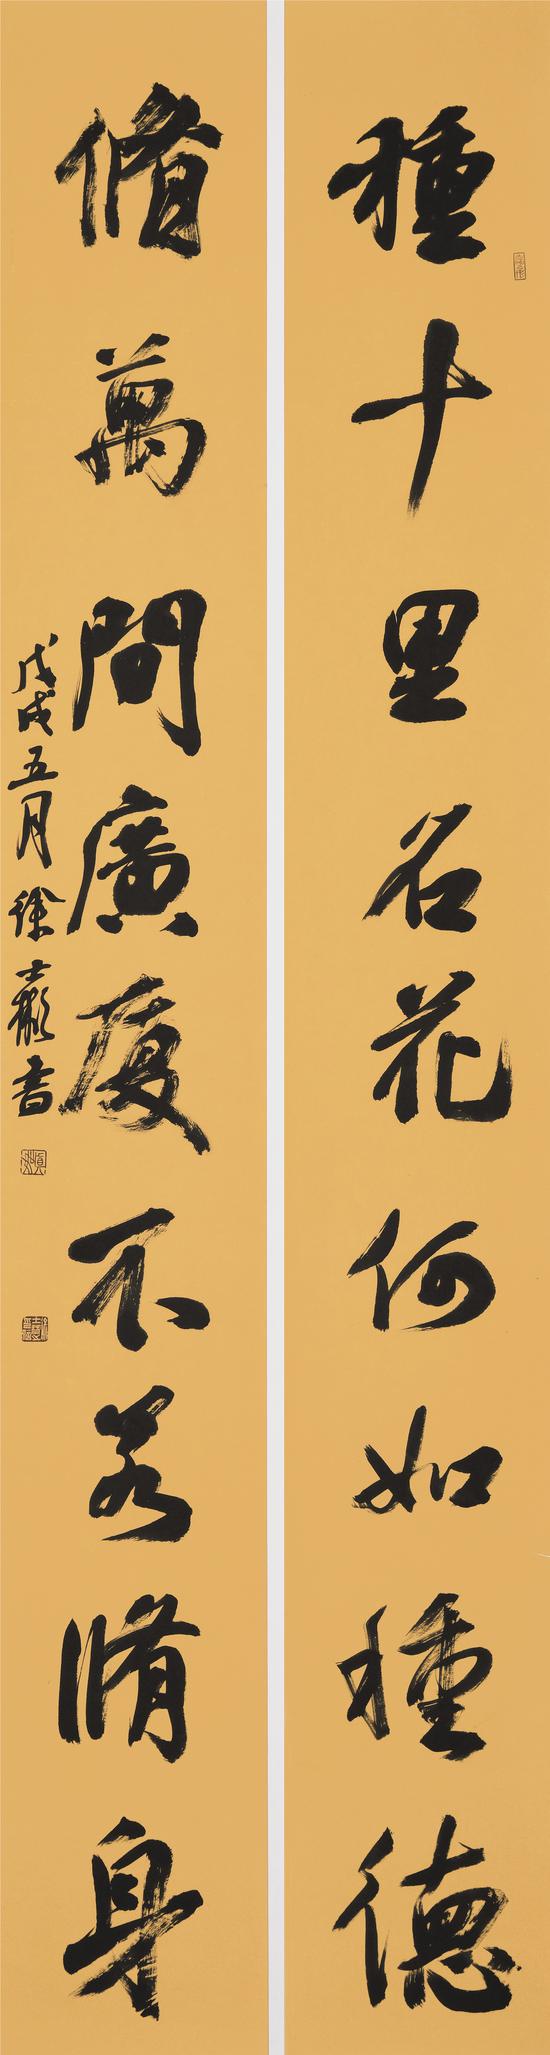 種十里名花何如種德
脩萬間廣廈不若脩身
戊戌五月徐士嚴書